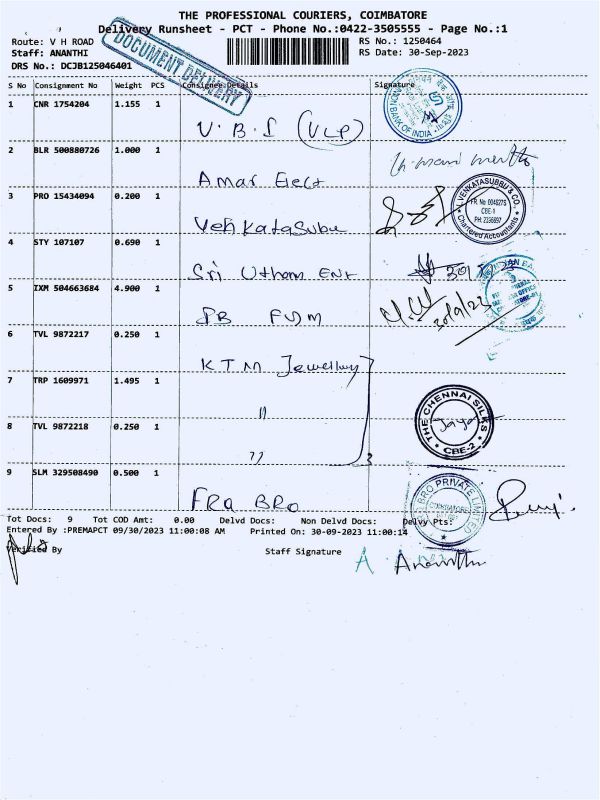 THE PROFESSIONAL COURIERS, COIMBATORE
Delivery Runsheet - PCT - Phone No.:0422-3505555 - Page No.:1
Route: V H ROAD
RS No.: 1250464
Staff: ANANTHI
RS Date: 30-Sep-2023
DRS No.: DCJB125046401
DOCUMENT DELIVERY
S No Consignment No Weight PCS Consignee Details Signature
1 CNR 1754204 1.155 1
BANK OF INDIA
2 BLR 500880726 1.000 1
Amar Elect
3 PRO 15434094 0.200 1
VENKATASUBBU & CO.
CBE-1
Chartered Accountants
Venkatasubu
4 STY 107107 0.690 1
Sri Utham Ent
5 IXM 504663684 4.900 1
30/9/23
6 TVL 9872217 0.250 1
KTM Jewellwy
7 TRP 1609971 1.495 1
"
THE CHENNAI SILKS
CBE-2
8 TVL 9872218 0.250 1
"
9 SLM 329508490 0.500 1
BRO PRIVATE LIMITED
FRA BRO
Tot Docs: 9 Tot COD Amt: 0.00 Delvd Docs: Non Delvd Docs: Delvy Pts:
Entered By :PREMAPCT 09/30/2023 11:00:08 AM Printed On: 30-09-2023 11:00:14
Verified By
Staff Signature